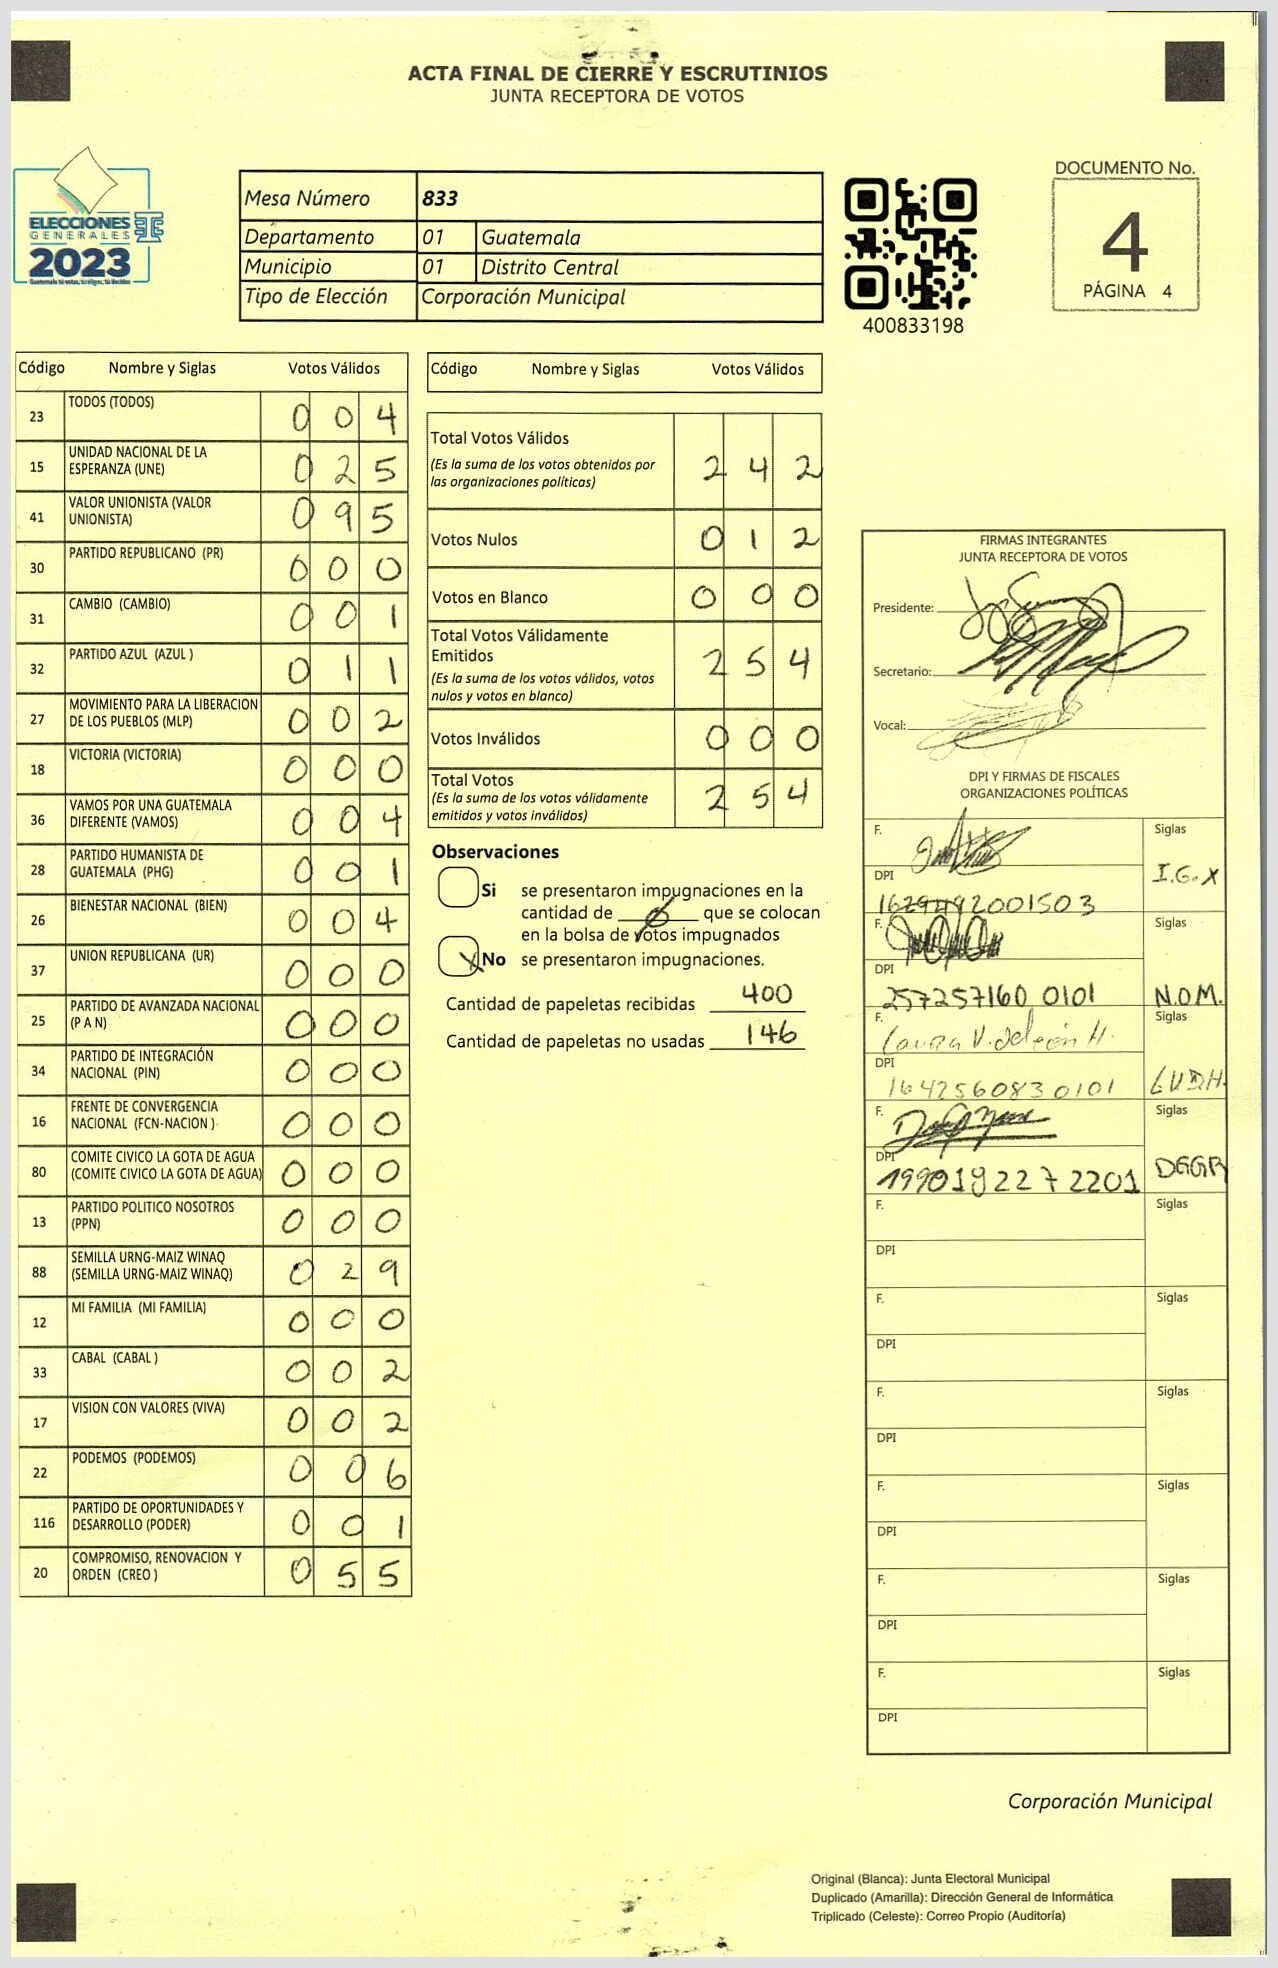 ACTA FINAL DE CIERRE Y ESCRUTINIOS
JUNTA RECEPTORA DE VOTOS
ELECCIONES
GENERALES
2023
Mesa Número 833
Departamento 01 Guatemala
Municipio 01 Distrito Central
Tipo de Elección Corporación Municipal
400833198
DOCUMENTO No.
4
PÁGINA 4
Código Nombre y Siglas Votos Válidos
23 TODOS (TODOS) 0 0 4
15 UNIDAD NACIONAL DE LA
ESPERANZA (UNE) 0 2 5
41 VALOR UNIONISTA (VALOR
UNIONISTA) 0 9 5
30 PARTIDO REPUBLICANO (PR) 0 0 0
31 CAMBIO (CAMBIO) 0 0 1
32 PARTIDO AZUL (AZUL ) 0 1 1
27 MOVIMIENTO PARA LA LIBERACION
DE LOS PUEBLOS (MLP) 0 0 2
18 VICTORIA (VICTORIA) 0 0 0
36 VAMOS POR UNA GUATEMALA
DIFERENTE (VAMOS) 0 0 4
28 PARTIDO HUMANISTA DE
GUATEMALA (PHG) 0 0 1
26 BIENESTAR NACIONAL (BIEN) 0 0 4
37 UNION REPUBLICANA (UR) 0 0 0
25 PARTIDO DE AVANZADA NACIONAL
(P A N) 0 0 0
34 PARTIDO DE INTEGRACIÓN
NACIONAL (PIN) 0 0 0
16 FRENTE DE CONVERGENCIA
NACIONAL (FCN-NACION ) 0 0 0
80 COMITE CIVICO LA GOTA DE AGUA
(COMITE CIVICO LA GOTA DE AGUA) 0 0 0
13 PARTIDO POLITICO NOSOTROS
(PPN) 0 0 0
88 SEMILLA URNG-MAIZ WINAQ
(SEMILLA URNG-MAIZ WINAQ) 0 2 9
12 MI FAMILIA (MI FAMILIA) 0 0 0
33 CABAL (CABAL ) 0 0 2
17 VISION CON VALORES (VIVA) 0 0 2
22 PODEMOS (PODEMOS) 0 0 6
116 PARTIDO DE OPORTUNIDADES Y
DESARROLLO (PODER) 0 0 1
20 COMPROMISO, RENOVACION Y
ORDEN (CREO ) 0 5 5
Código Nombre y Siglas Votos Válidos
Total Votos Válidos
(Es la suma de los votos obtenidos por
las organizaciones políticas) 2 4 2
Votos Nulos 0 1 2
Votos en Blanco 0 0 0
Total Votos Válidamente
Emitidos
(Es la suma de los votos válidos, votos
nulos y votos en blanco) 2 5 4
Votos Inválidos 0 0 0
Total Votos
(Es la suma de los votos válidamente
emitidos y votos inválidos) 2 5 4
Observaciones
Si se presentaron impugnaciones en la
cantidad de 0 que se colocan
en la bolsa de votos impugnados
X No se presentaron impugnaciones.
Cantidad de papeletas recibidas 400
Cantidad de papeletas no usadas 146
FIRMAS INTEGRANTES
JUNTA RECEPTORA DE VOTOS
Presidente:
Secretario:
Vocal:
DPI Y FIRMAS DE FISCALES
ORGANIZACIONES POLÍTICAS
F. Siglas
DPI I.G.X
F. Siglas
DPI
257257160 0101 N.O.M.
F. Laura V. deleón H. Siglas
DPI
1642560830101 LVDH.
F. Siglas
DPI
1990192272201 DGGR
F. Siglas
DPI
F. Siglas
DPI
F. Siglas
DPI
F. Siglas
DPI
F. Siglas
DPI
F. Siglas
DPI
Corporación Municipal
Original (Blanca): Junta Electoral Municipal
Duplicado (Amarilla): Dirección General de Informática
Triplicado (Celeste): Correo Propio (Auditoría)